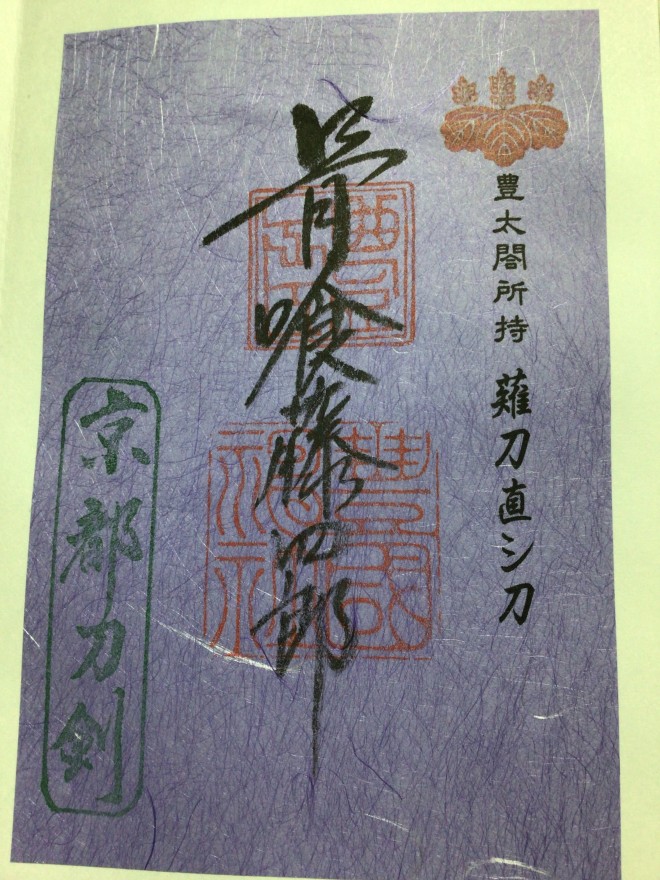 豊太閤所持 薙刀直シ刀
骨喰藤四郎
豐國神社
京都刀剣